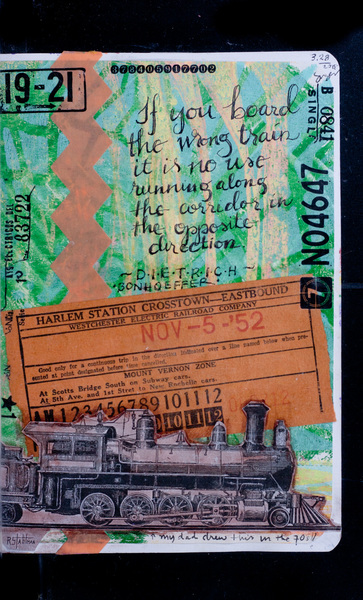 378405917702
3.28
19-21
If you board
the wrong train
it is no use
running along
the corridor in
the opposite
direction.
~ D·I·E·T·R·I·C·H ~
·BONHOEFFER·
B 0841
SINGL
NO4647
83722
HARLEM STATION CROSSTOWN—EASTBOUND
WESTCHESTER ELECTRIC RAILROAD COMPANY
NOV-5-'52
Good only for a continuous trip in the direction indicated over a line named below when pre-
sented at point designated before time cancelled.
MOUNT VERNON ZONE
At Scotts Bridge South on Subway cars.
At 5th Ave. and 1st Street to New Rochelle cars.
AM 1 2 3 4 5 6 7 8 9 10 11 12
10 11 12
* my dad drew this in the 70's!